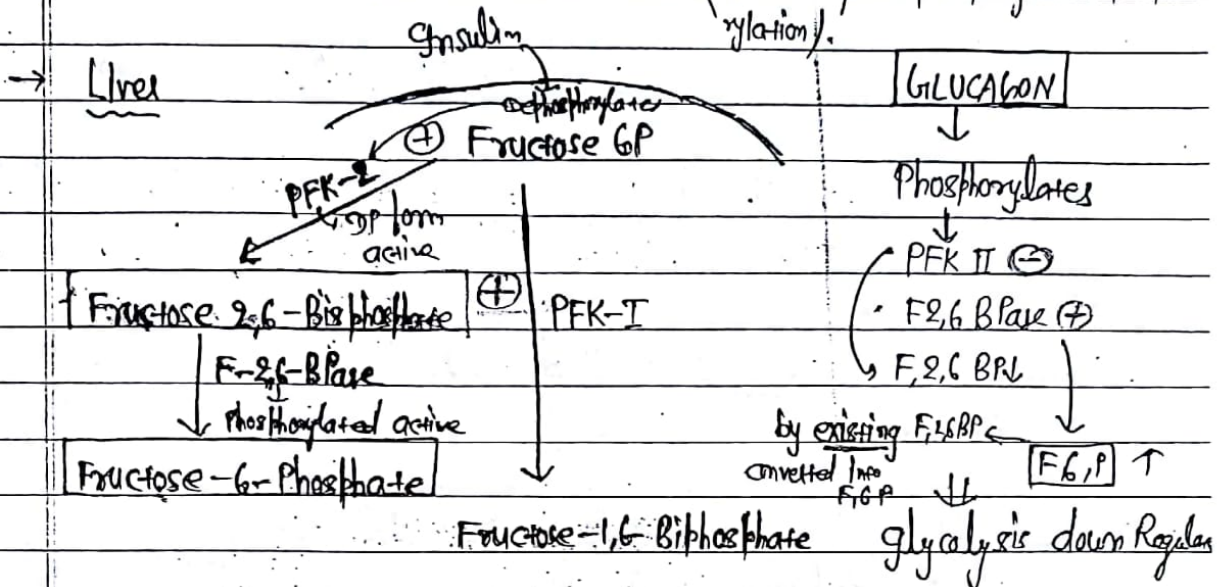 rylation).
Insulin
→ Liver
dephosphorylate
⊕ Fructose 6P
PFK-2
DP form
active
Fructose 2,6-Bisphosphate
⊕ PFK-I
F-2,6-BPase
Phosphorylated active
Fructose-6-Phosphate
Fructose-1,6-Biphosphate
GLUCAGON
Phosphorylates
PFK II ⊖
F2,6 BPase ⊕
F,2,6 BP↓
F6,P ↑
by existing F,2,6BP
converted Info
F,6P
glycolysis down Regular